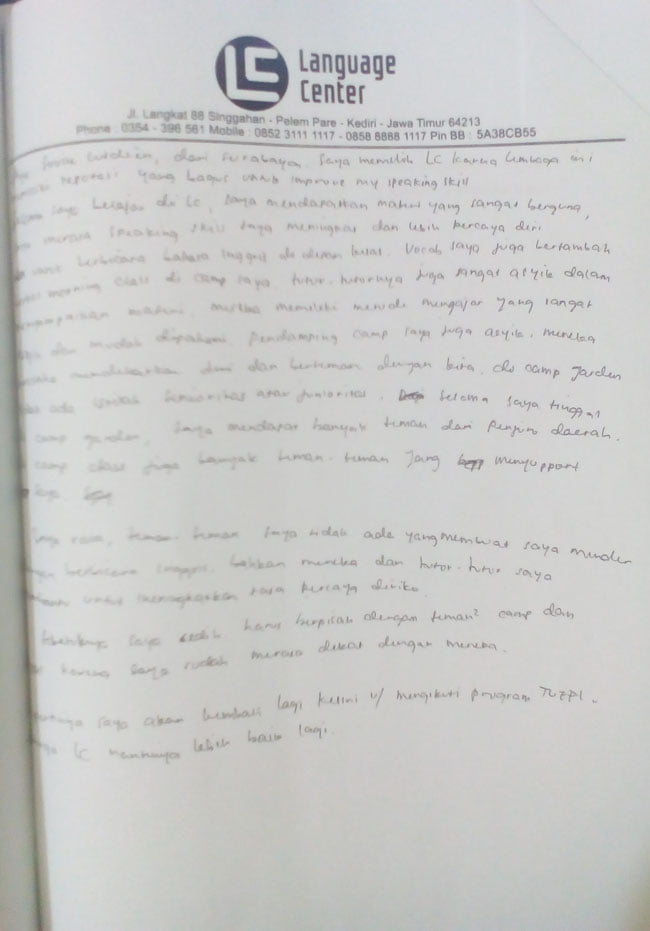 LC Language
Center
Jl. Langkat 88 Singgahan - Pelem Pare - Kediri - Jawa Timur 64213
Phone : 0354 - 396 561 Mobile : 0852 3111 1117 - 0858 8888 1117 Pin BB : 5A38CB55
dari Surabaya. Saya memilih LC karena lembaga ini
reputasi yang bagus untuk improve my speaking skill
saya belajar di LC, saya mendapatkan materi yang sangat berguna,
merasa speaking skill saya meningkat dan lebih percaya diri
untuk berbicara bahasa inggris di depan kelas. Vocab saya juga bertambah
morning class di camp saya. tutor-tutornya juga sangat asyik dalam
materi. mereka memiliki metode mengajar yang sangat
dan mudah dipahami. Pendamping camp saya juga asyik. mereka
mendekatkan diri dan berteman dengan kita. di camp garden
ada istilah senioritas atau junioritas. selama saya tinggal
camp garden, saya mendapat banyak teman dari penjuru daerah.
camp class juga banyak teman-teman yang menyupport
saya
saya rasa, teman-teman saya tidak ada yang membuat saya minder
berbicara inggris. bahkan mereka dan tutor-tutor saya
untuk meningkatkan rasa percaya diriku.
saya sedih harus berpisah dengan teman² camp dan
karena saya sudah merasa dekat dengan mereka.
saya akan kembali lagi kesini u/ mengikuti program
LC lebih baik lagi.